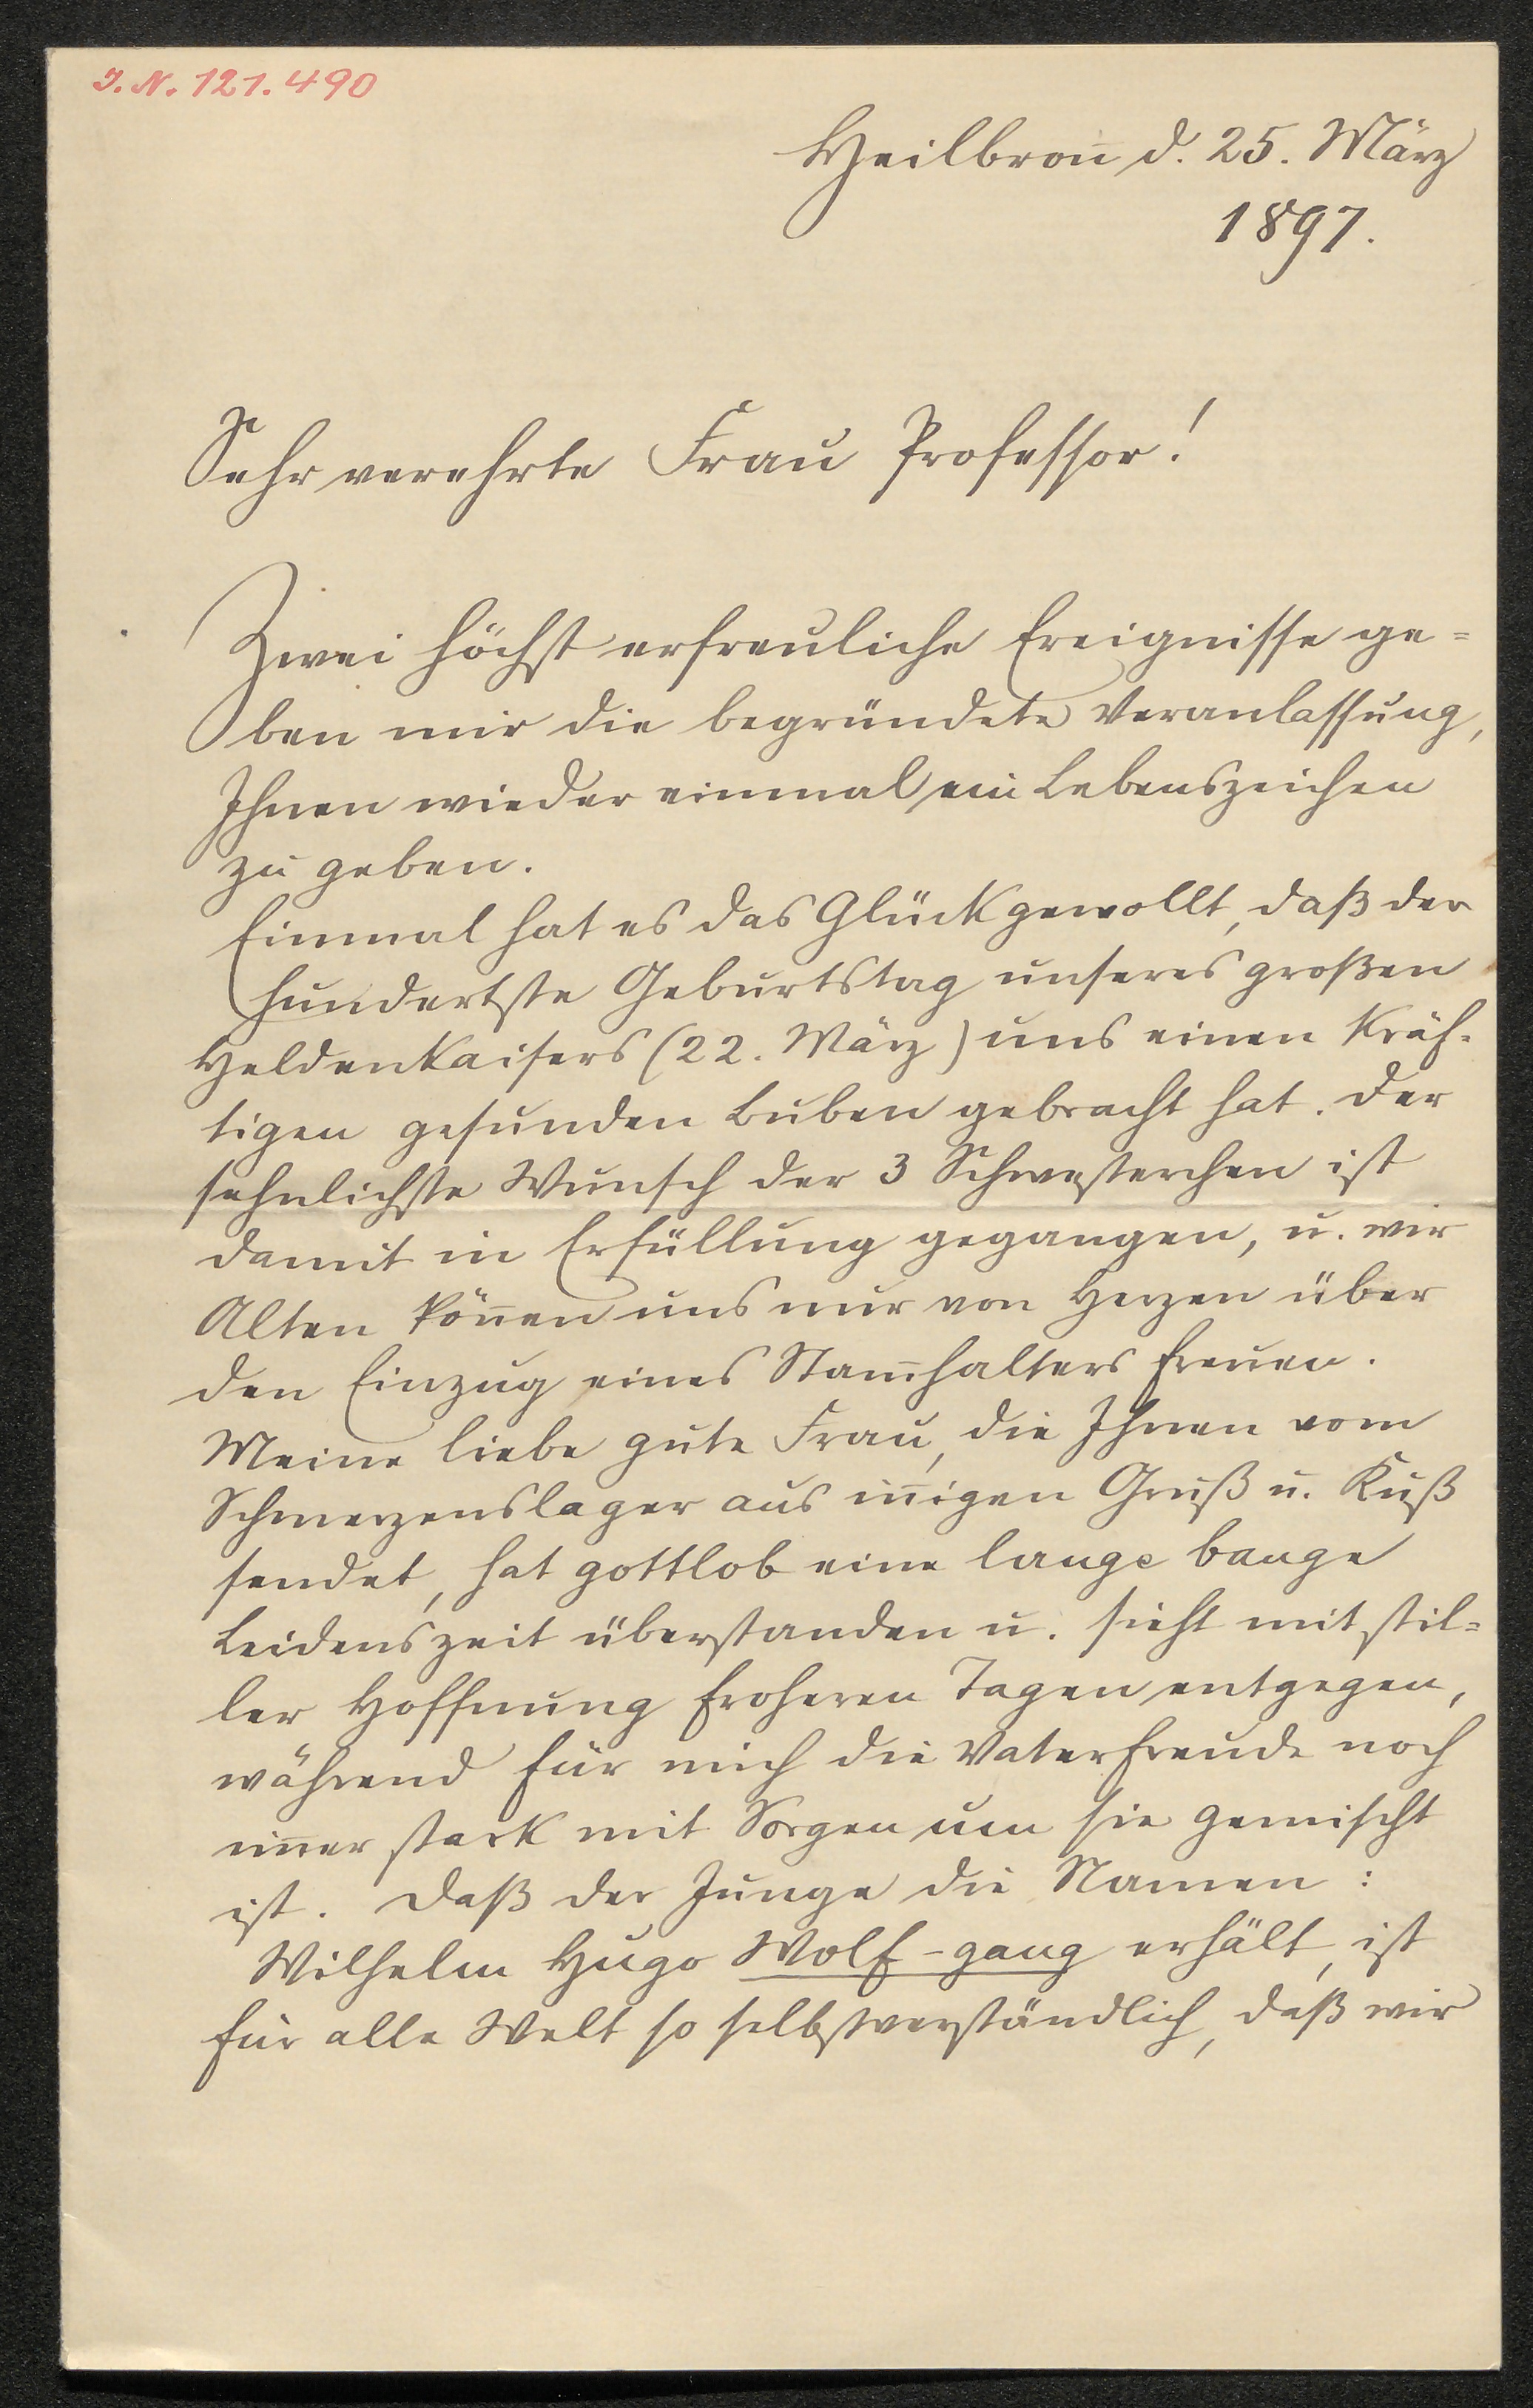 I. N. 121.490
Heilbron̄ d. 25. März
1897.
Sehr verehrte Frau Professor!
Zwei höchst erfreuliche Ereignisse ge=
ben mir die begründete Veranlassung,
Ihnen wieder einmal ein Lebenszeichen
zu geben.
Einmal hat es das Glück gewollt, daß der
hundertste Geburtstag unseres großen
Heldenkaisers (22. März) uns einen kräf-
tigen gesunden Buben gebracht hat. Der
sehnlichste Wunsch der 3 Schwesterchen ist
damit in Erfüllung gegangen, u. wir
Alten kön̄en uns nur von Herzen über
den Einzug eines Stam̄halters freuen.
Meine liebe gute Frau, die Ihnen vom
Schmerzenslager aus in̄igen Gruß u. Kuß
sendet, hat gottlob eine lange bange
Leidenszeit überstanden u. sieht mit stil=
ler Hoffnung froheren Tagen entgegen,
während für mich die Vaterfreude noch
im̄er stark mit Sorgen um sie gemischt
ist. Daß der Junge die Namen:
Wilhelm Hugo Wolf-gang erhält, ist
für alle Welt so selbstverständlich, daß wir